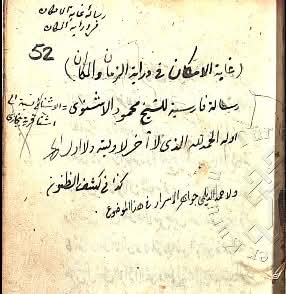 رسالة غاية الامكان
في دراية المكان
52
(غاية الامكان في دراية الزمان والمكان)
رسالة فارسية للشيخ محمود الاشنوى
الاشنوى نسبة الى
اشنا قرية
اوله الحمد لله الذى لا آخر لاوليته ولا اول الخ
كذا فى كشف الظنون
ولاحمد الديلمى جواهر الاسرار فى هذا الموضوع